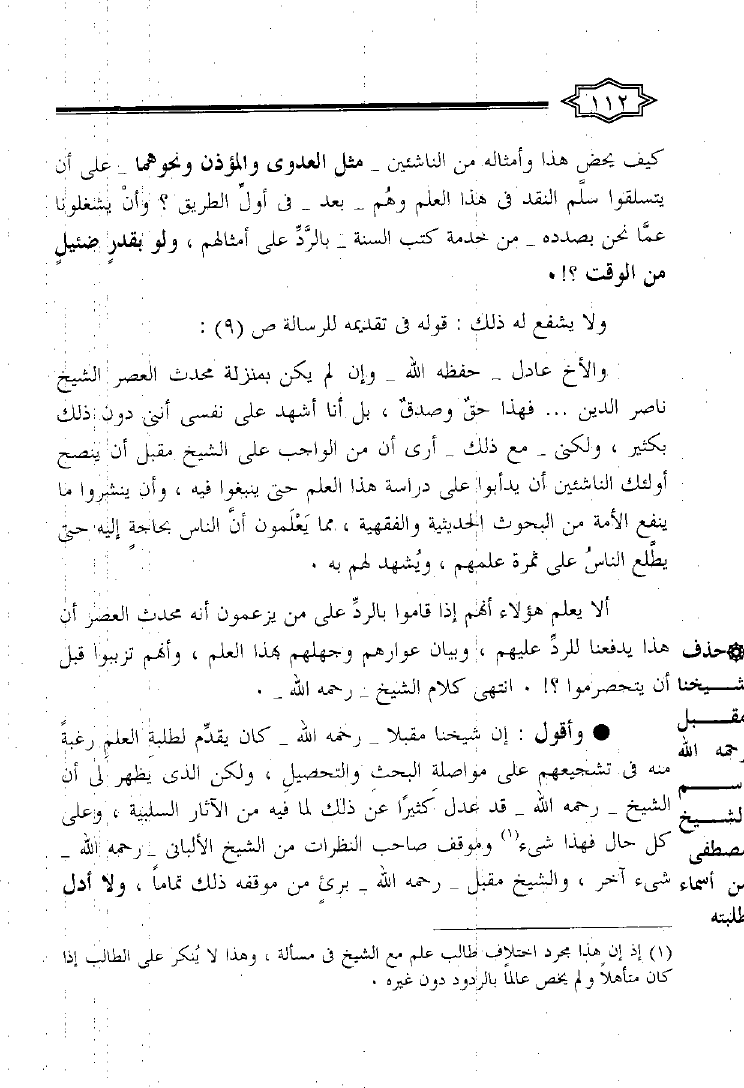 ١١٢
كيف يحض هذا وأمثاله من الناشئين ـ مثل العدوى والمؤذن ونحوهما ـ على أن
يتسلقوا سلَّم النقد فى هذا العلم وهُم ـ بعد ـ فى أولِّ الطريق ؟ وأنْ يشغلونا
عمَّا نحن بصدده ـ من خدمة كتب السنة ـ بالرَّدِّ على أمثالهم ، ولو بقدرٍ ضئيلٍ
من الوقت ؟! .
ولا يشفع له ذلك : قوله فى تقديمه للرسالة ص (٩) :
والأخ عادل ـ حفظه الله ـ وإن لم يكن بمنزلة محدث العصر الشيخ
ناصر الدين ... فهذا حقٌ وصدقٌ ، بل أنا أشهد على نفسى أننى دون ذلك
بكثير ، ولكنى ـ مع ذلك ـ أرى أن من الواجب على الشيخ مقبل أن ينصح
أولئك الناشئين أن يدأبوا على دراسة هذا العلم حتى ينبغوا فيه ، وأن ينشروا ما
ينفع الأمة من البحوث الحديثية والفقهية ، مما يَعْلَمون أنَّ الناس بحاجةٍ إليه حتى
يطَّلع الناسُ على ثمرة علمهم ، ويُشهد لهم به .
ألا يعلم هؤلاء أنهم إذا قاموا بالردِّ على من يزعمون أنه محدث العصر أن
هذا يدفعنا للردِّ عليهم ، وبيان عوارهم وجهلهم بهذا العلم ، وأنهم تزببوا قبل
أن يتحصرموا ؟! . انتهى كلام الشيخ ـ رحمه الله ـ .
● وأقول : إن شيخنا مقبلا ـ رحمه الله ـ كان يقدِّم لطلبةِ العلمِ رغبةً
منه فى تشجيعهم على مواصلةِ البحثِ والتحصيلِ ، ولكن الذى يظهر لى أن
الشيخ ـ رحمه الله ـ قد عدل كثيرًا عن ذلك لما فيه من الآثار السلبية ، وعلى
كل حال فهذا شىء(١) وموقف صاحب النظرات من الشيخ الألبانى ـ رحمه الله ـ
شىء آخر ، والشيخ مقبل ـ رحمه الله ـ برئٍ من موقفه ذلك تماماً ، ولا أدل
۞حذف
شـيخنا
مقـبـل
رحمه الله
سـم
لشـيخ
مصطفى
من أسماء
طلبته
(١) إذ إن هذا مجرد اختلاف طالب علم مع الشيخ فى مسألة ، وهذا لا يُنكر على الطالب إذا
كان متأهلاً و لم يخص عالماً بالردود دون غيره .